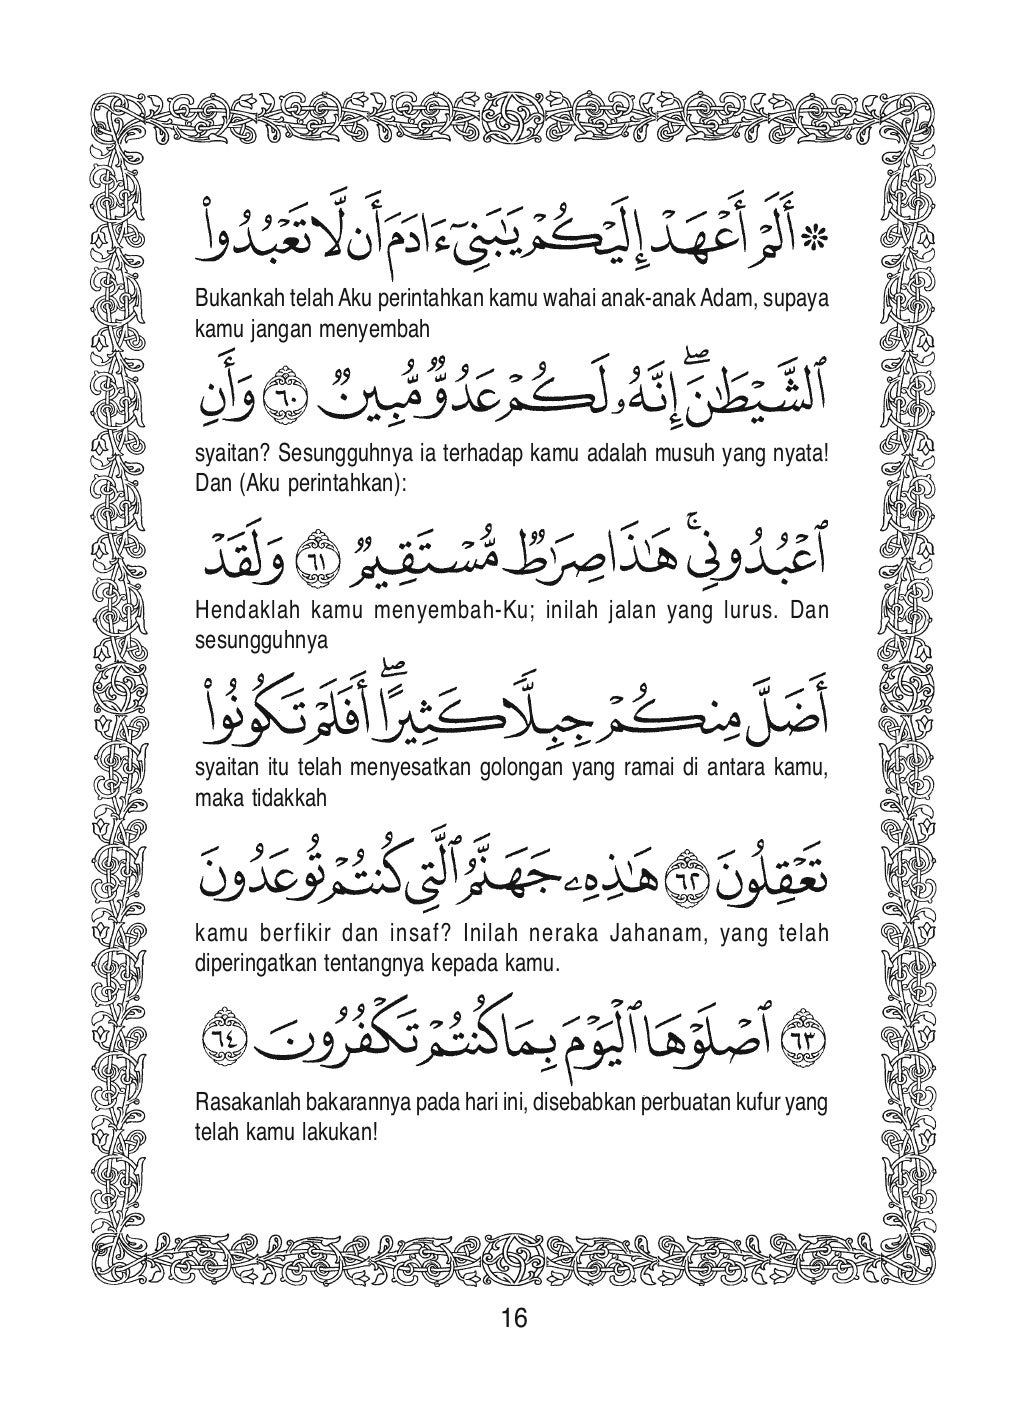 ۞ أَلَمْ أَعْهَدْ إِلَيْكُمْ يَٰبَنِىٓ ءَادَمَ أَن لَّا تَعْبُدُوا۟
Bukankah telah Aku perintahkan kamu wahai anak-anak Adam, supaya
kamu jangan menyembah
ٱلشَّيْطَٰنَ ۖ إِنَّهُۥ لَكُمْ عَدُوٌّ مُّبِينٌ ۝٦٠ وَأَنِ
syaitan? Sesungguhnya ia terhadap kamu adalah musuh yang nyata!
Dan (Aku perintahkan):
ٱعْبُدُونِى ۚ هَٰذَا صِرَٰطٌ مُّسْتَقِيمٌ ۝٦١ وَلَقَدْ
Hendaklah kamu menyembah-Ku; inilah jalan yang lurus. Dan
sesungguhnya
أَضَلَّ مِنكُمْ جِبِلًّا كَثِيرًا ۖ أَفَلَمْ تَكُونُوا۟
syaitan itu telah menyesatkan golongan yang ramai di antara kamu,
maka tidakkah
تَعْقِلُونَ ۝٦٢ هَٰذِهِۦ جَهَنَّمُ ٱلَّتِى كُنتُمْ تُوعَدُونَ
kamu berfikir dan insaf? Inilah neraka Jahanam, yang telah
diperingatkan tentangnya kepada kamu.
۝٦٣ ٱصْلَوْهَا ٱلْيَوْمَ بِمَا كُنتُمْ تَكْفُرُونَ ۝٦٤
Rasakanlah bakarannya pada hari ini, disebabkan perbuatan kufur yang
telah kamu lakukan!
16